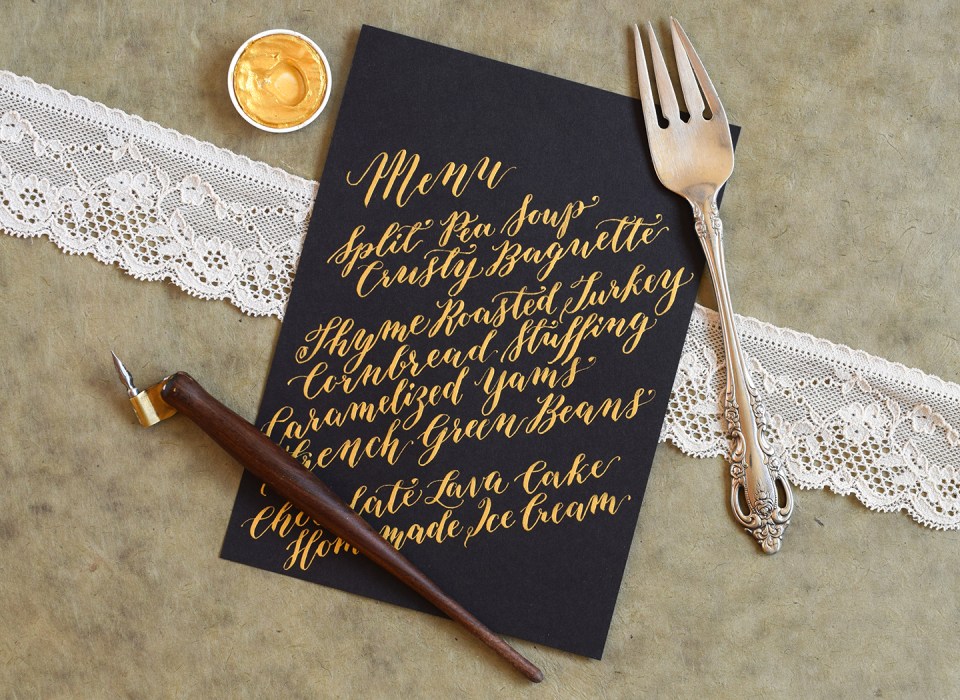 Menu
Split Pea Soup
Crusty Baguette
Thyme Roasted Turkey
Cornbread Stuffing
Caramelized Yams
French Green Beans
Chocolate Lava Cake
Homemade Ice Cream